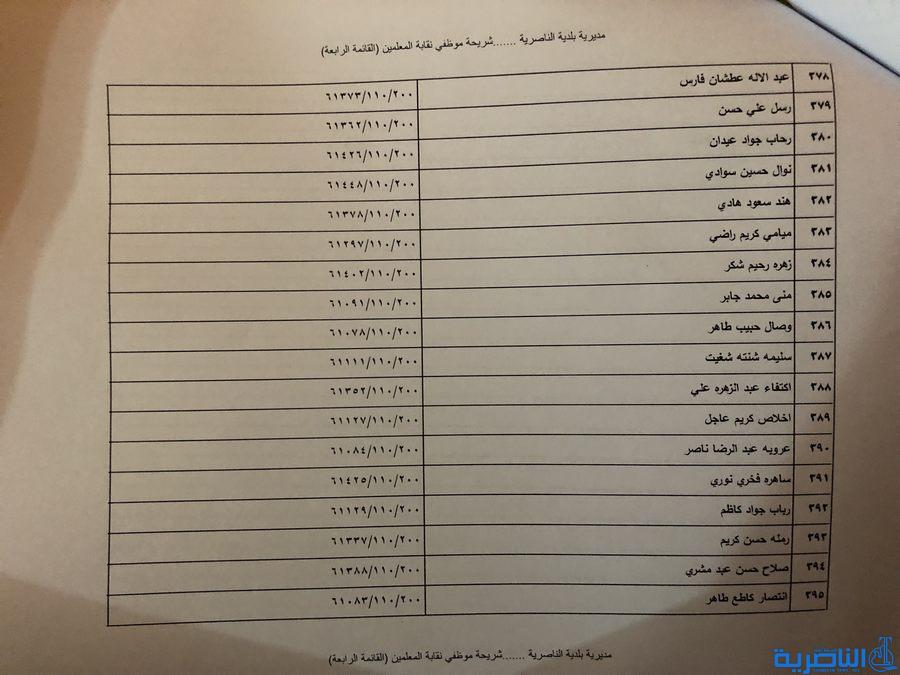 مديرية بلدية الناصرية .......شريحة موظفي نقابة المعلمين (القائمة الرابعة)
٣٧٨ عبد الاله عطشان فارس ٦١٣٧٣/١١٠/٢٠٠
٣٧٩ رسل علي حسن ٦١٣٦٢/١١٠/٢٠٠
٣٨٠ رحاب جواد عيدان ٦١٤٢٦/١١٠/٢٠٠
٣٨١ نوال حسين سوادي ٦١٤٤٨/١١٠/٢٠٠
٣٨٢ هند سعود هادي ٦١٣٧٨/١١٠/٢٠٠
٣٨٣ ميامي كريم راضي ٦١٢٩٧/١١٠/٢٠٠
٣٨٤ زهره رحيم شكر ٦١٤٠٢/١١٠/٢٠٠
٣٨٥ منى محمد جابر ٦١٠٩١/١١٠/٢٠٠
٣٨٦ وصال حبيب طاهر ٦١٠٧٨/١١٠/٢٠٠
٣٨٧ سليمه شنته شغيت ٦١١١١/١١٠/٢٠٠
٣٨٨ اكتفاء عبد الزهره علي ٦١٣٥٢/١١٠/٢٠٠
٣٨٩ اخلاص كريم عاجل ٦١١٢٧/١١٠/٢٠٠
٣٩٠ عروبه عبد الرضا ناصر ٦١٠٨٤/١١٠/٢٠٠
٣٩١ ساهره فخري نوري ٦١٤٢٥/١١٠/٢٠٠
٣٩٢ رباب جواد كاظم ٦١١٢٩/١١٠/٢٠٠
٣٩٣ رمله حسن كريم ٦١٣٣٧/١١٠/٢٠٠
٣٩٤ صلاح حسن عبد مشري ٦١٣٨٨/١١٠/٢٠٠
٣٩٥ انتصار كاطع طاهر ٦١٠٨٣/١١٠/٢٠٠
مديرية بلدية الناصرية .......شريحة موظفي نقابة المعلمين (القائمة الرابعة)
الناصرية